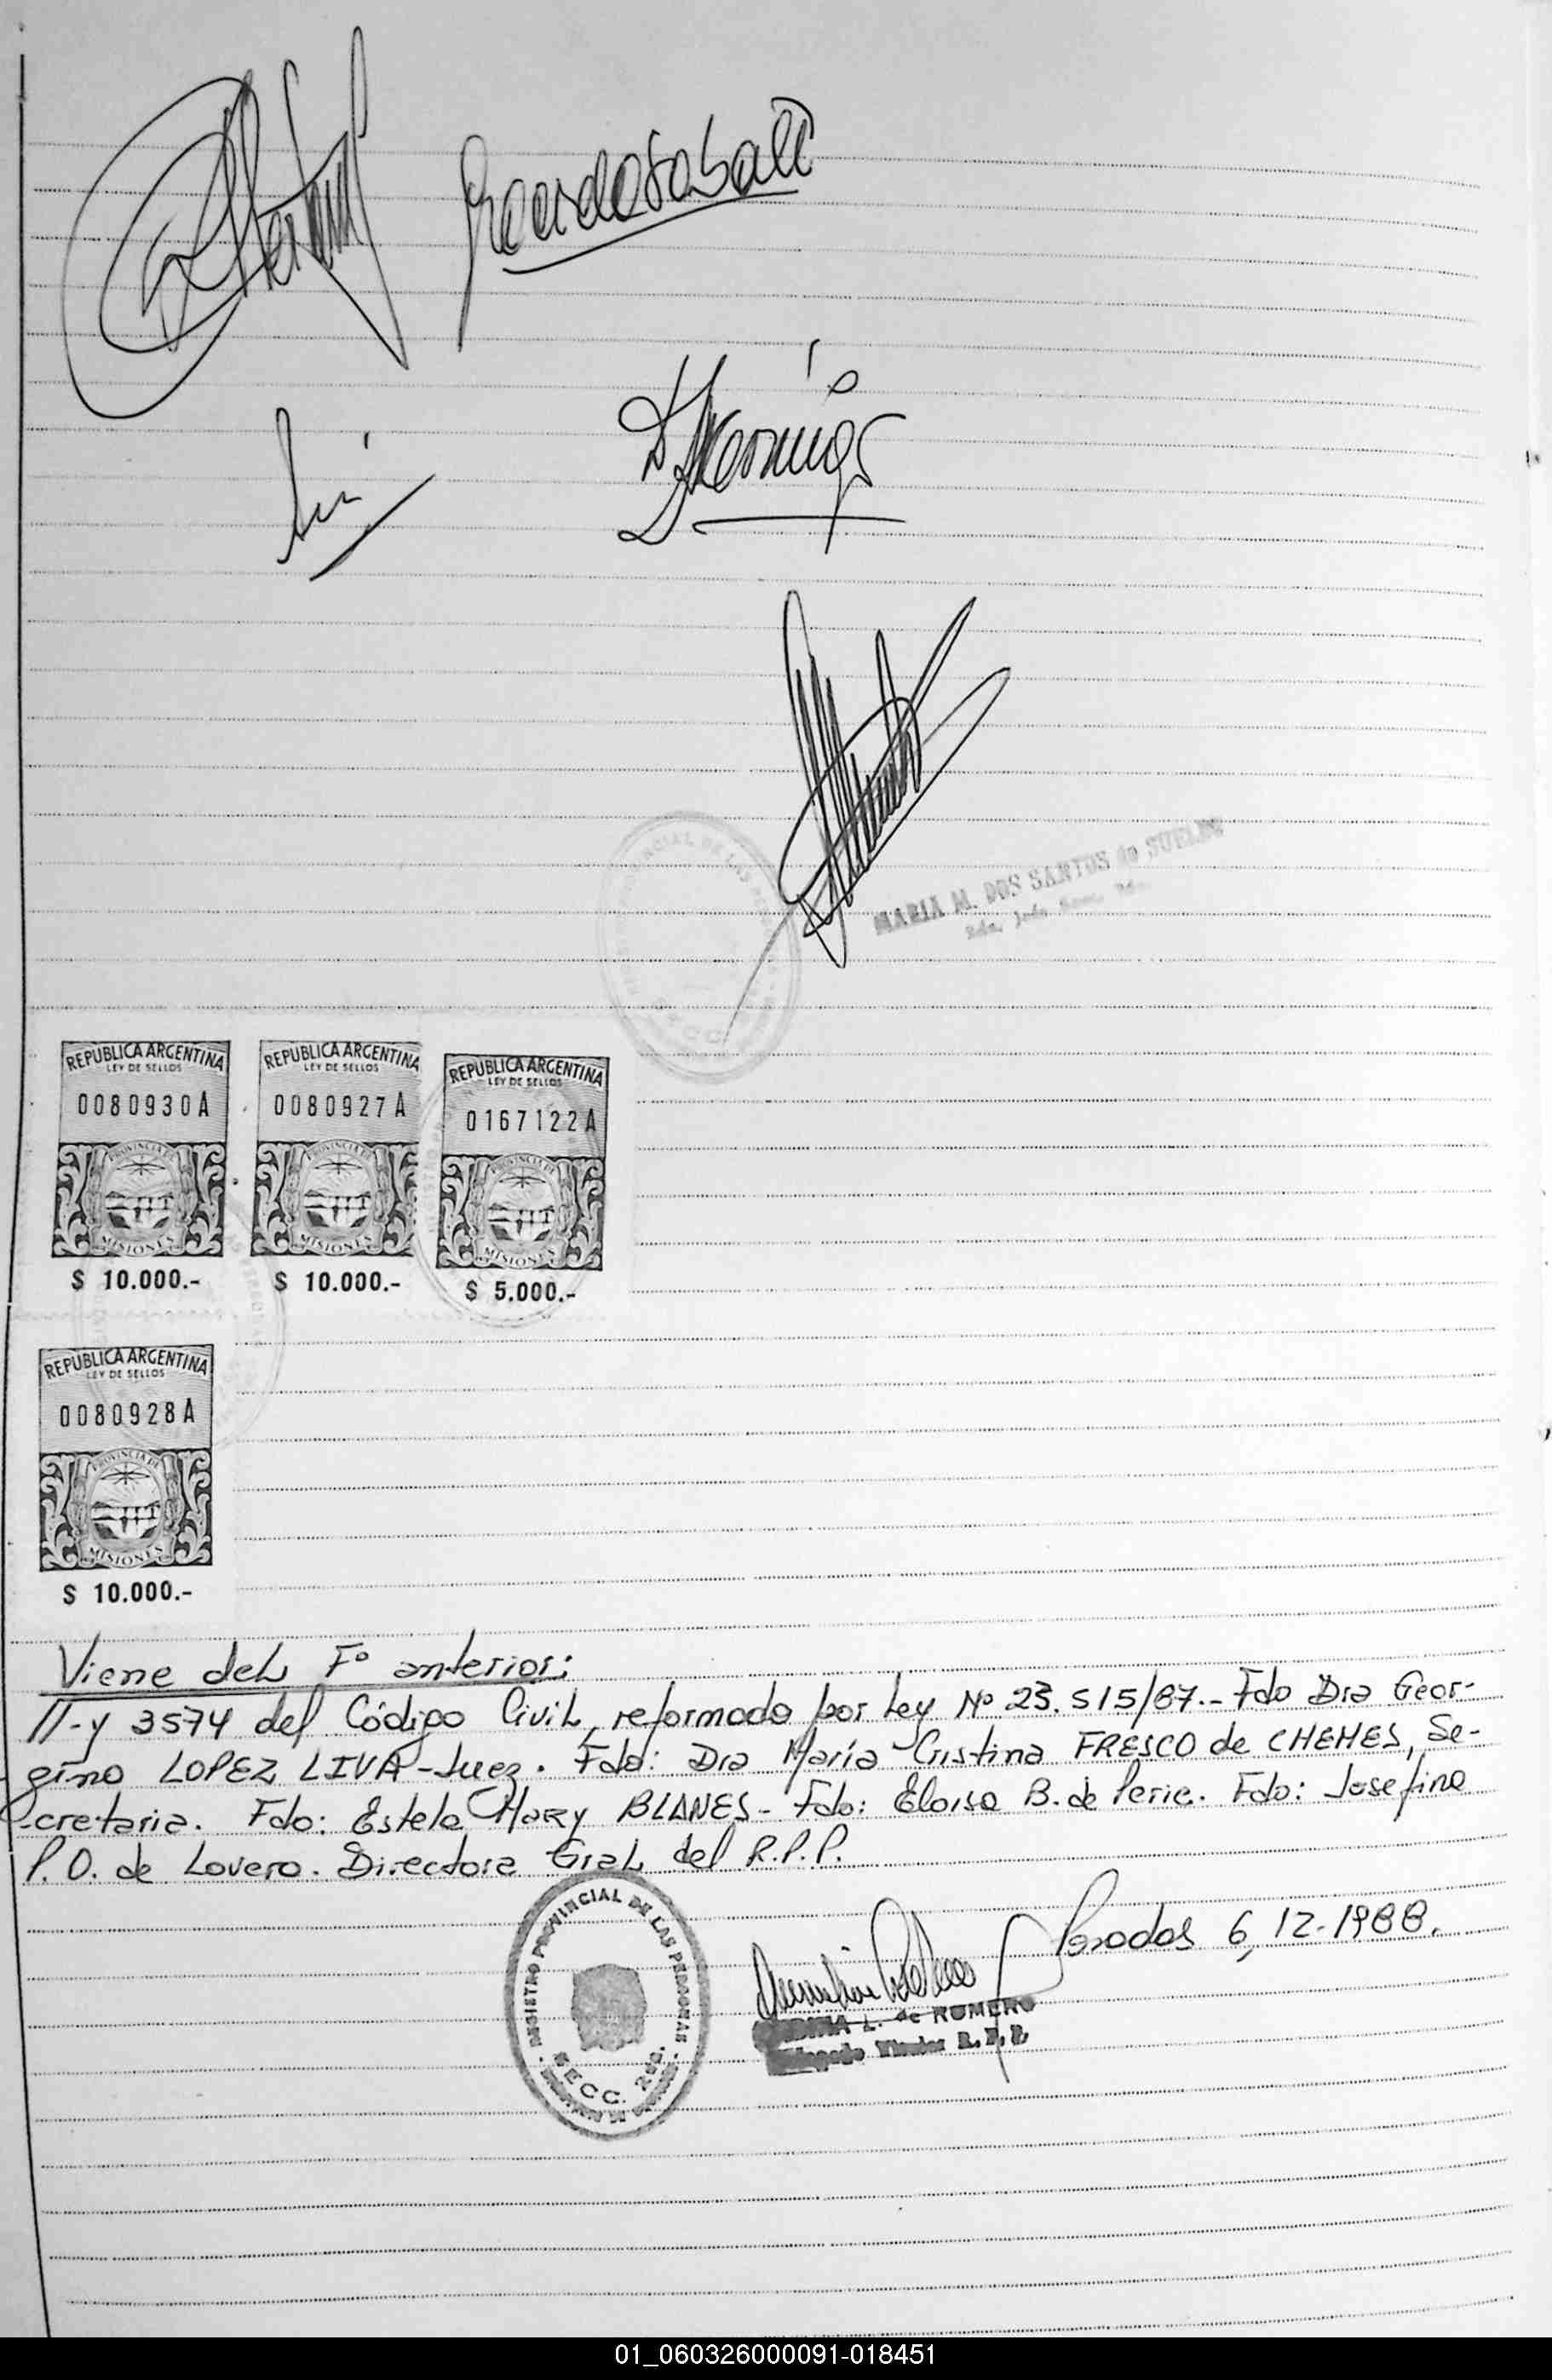 MARIA M. DOS SANTOS de SUELDO
REPUBLICA ARGENTINA
LEY DE SELLOS
0080930A
PROVINCIA DE
MISIONES
$ 10.000.-
REPUBLICA ARGENTINA
LEY DE SELLOS
0080927A
PROVINCIA DE
MISIONES
$ 10.000.-
REPUBLICA ARGENTINA
LEY DE SELLOS
0167122A
PROVINCIA DE
MISIONES
$ 5.000.-
REPUBLICA ARGENTINA
LEY DE SELLOS
0080928A
PROVINCIA DE
MISIONES
$ 10.000.-
Viene del Fº anterior:
//-y 3574 del Código Civil, reformado por Ley Nº 23.515/87.- Fdo Dra Geor-
gina LOPEZ LIVA - Juez. Fdo: Dra María Cristina FRESCO de CHEMES, Se-
cretaria. Fdo: Estela Mary BLANES - Fdo: Eloisa B. de Peric. Fdo: Josefina
P. O. de Lovera. Directora Gral del R.P.P.
Posadas 6, 12-1988.
REGISTRO PROVINCIAL DE LAS PERSONAS
SECC. 2da.
L. de ROMERO
Titular R. P. P.
01_060326000091-018451